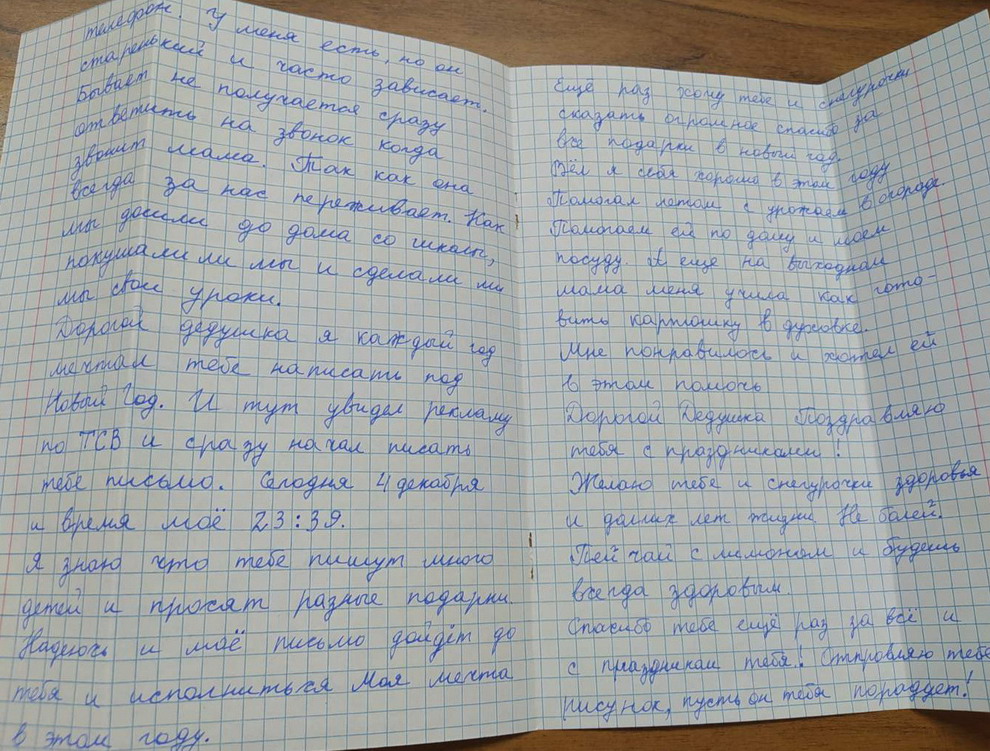 телефон. У меня есть, но он
старенький и часто зависает.
Бывает не получается сразу
ответить на звонок когда
звонит мама. Так как она
всегда за нас переживает. Как
мы дошли до дома со школы,
покушали ли мы и сделали ли
мы свои уроки.
Дорогой дедушка я каждый год
мечтал тебе написать под
Новый Год. И тут увидел рекламу
по ТСВ и сразу начал писать
тебе письмо. Сегодня 4 декабря
и время моё 23:39.
Я знаю что тебе пишут много
детей и просят разные подарки.
Надеюсь и моё письмо дойдёт до
тебя и исполниться моя мечта
в этом году.
Ещё раз хочу тебе и снегурочки
сказать огромное спасибо за
все подарки в новый год.
Вёл я себя хорошо в этом году
Помогал летом с урожаем в огороде.
Помогаем ей по дому и моем
посуду. А еще на выходном
мама меня учила как гото-
вить картошку в духовке.
Мне понравилось и хотел ей
в этом помочь
Дорогой Дедушка Поздравляю
тебя с праздниками!
Желаю тебе и снегурочки здоровья
и долгих лет жизни. Не болей.
Пей чай с лимоном и будешь
всегда здоровым.
Спасибо тебе ещё раз за всё и
с праздником тебя! Отправляю тебе
рисунок, пусть он тебя порадует!